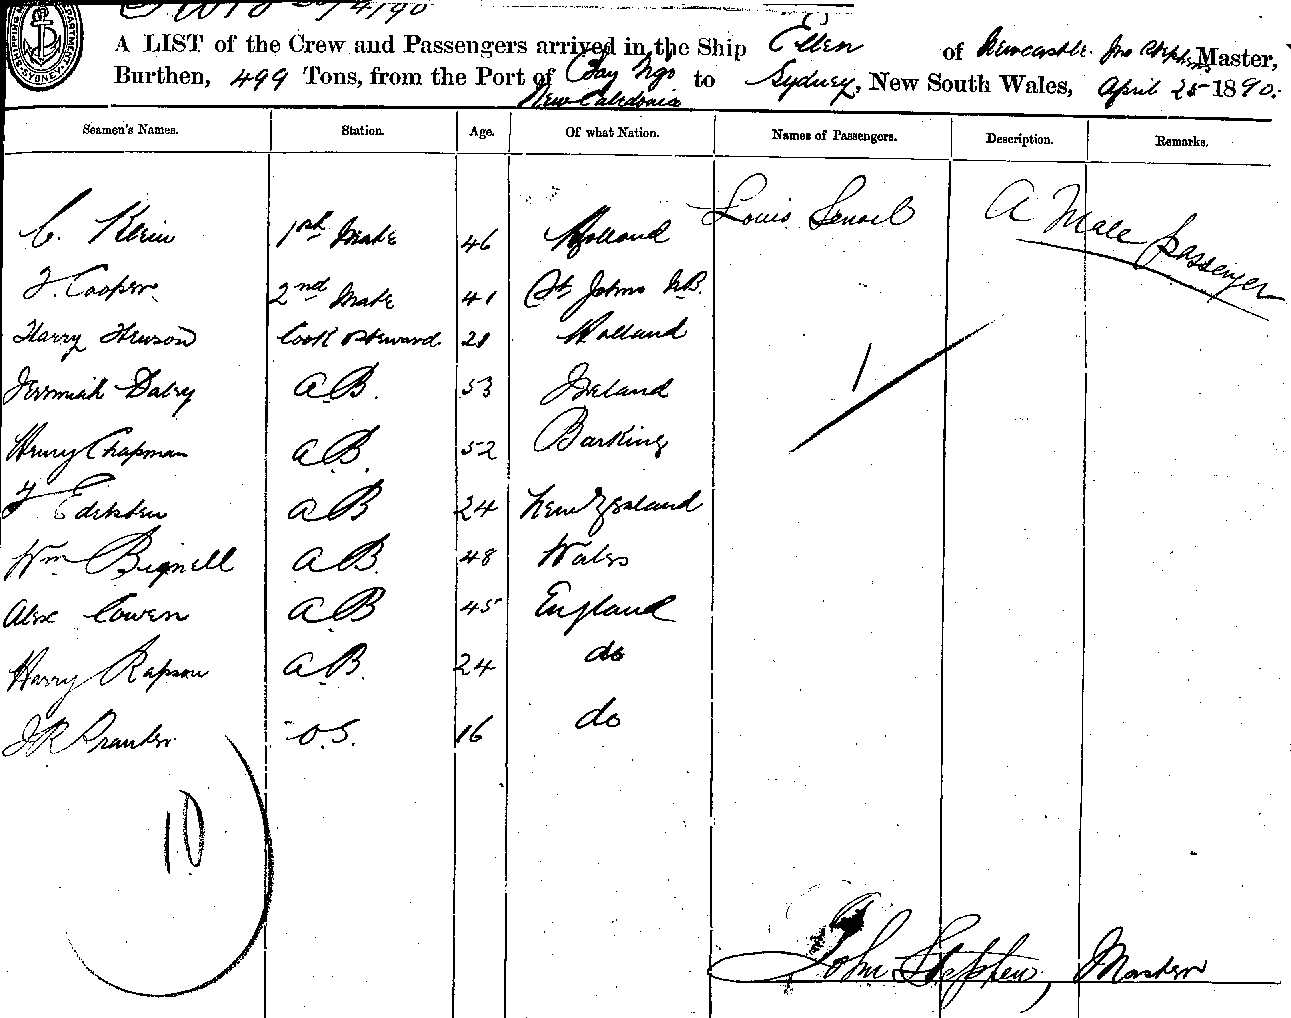 A LIST of the Crew and Passengers arrived in the Ship Ellen of Newcastle. Jno Stephens Master,
Burthen, 499 Tons, from the Port of Bay Ngo New Caledonia to Sydney, New South Wales, April 25 1890.
Seamen's Names. Station. Age. Of what Nation. Names of Passengers. Description. Remarks.
C. Klein 1st Mate 46 Holland Louis A Male passenger
J. Cooper 2nd Mate 41 St Johns N.B.
Harry Hewson Cook & Steward 21 Holland
1
Jeremiah Daley A.B. 53 Ireland
Henry Chapman A.B. 52 Barking
A.B 24 New Zealand
Wm Bignell A.B. 48 Wales
Alex Cowen A.B 45 England
Harry Rapson A.B. 24 do
J R O.S. 16 do
10
John Stephens, Master